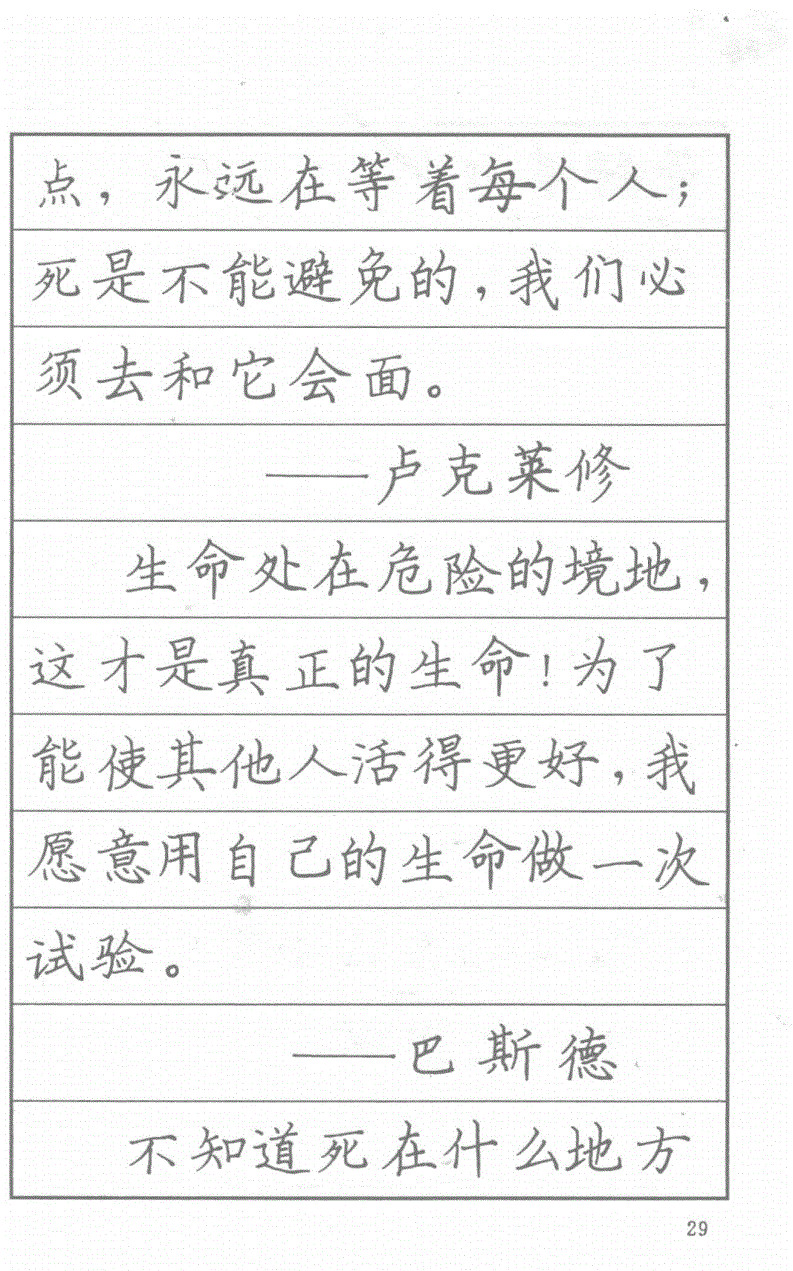 点，永远在等着每个人；
死是不能避免的，我们必
须去和它会面。
——卢克莱修
生命处在危险的境地，
这才是真正的生命！为了
能使其他人活得更好，我
愿意用自己的生命做一次
试验。
——巴斯德
不知道死在什么地方
29